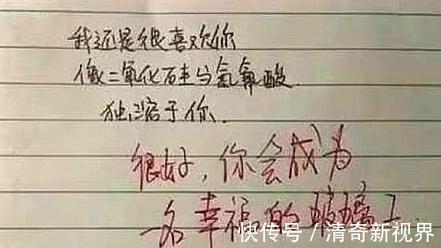 我还是很喜欢你
像二氧化硅与氢氟酸.
独溶于你.
很好,你会成为
一名幸福的玻璃工
快传号/清奇新视界